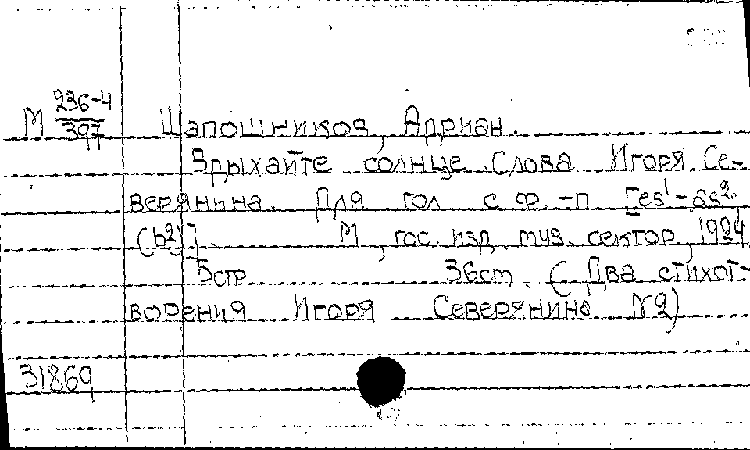 М 236-4
397
Шапошников, Адриан.
Вдыхайте солнце. Слова Игоря Се-
верянина. Для гол. с ф.-п. [es¹-as².
(b²)] М., гос. изд. муз. сектор, 1924
5стр 36cm. (Два стихот-
ворения Игоря Северянина №2)
31869